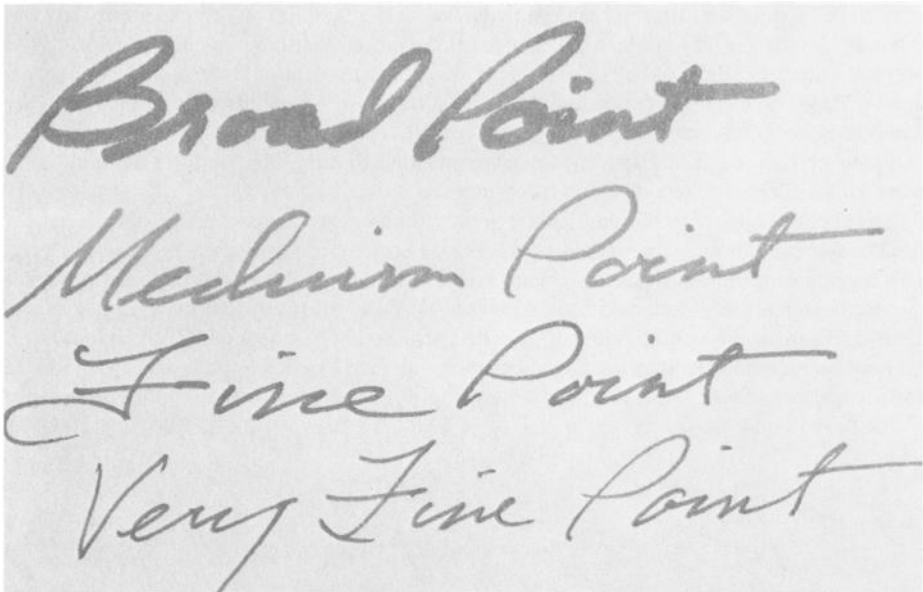 Broad Point
Medium Point
Fine Point
Very Fine Point